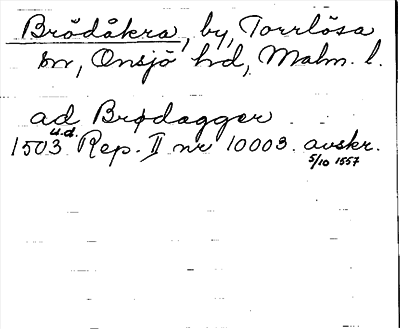 Brödåkra, by, Torrlösa
sn, Onsjö hd, Malm. l.
ad Brødagger
1503 u.d. Rep. II nr 10003. avskr.
5/10 1557